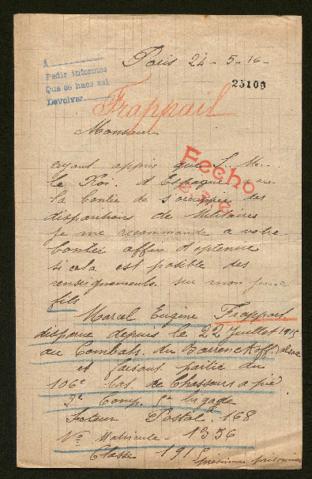 A
Pedir informes
Que se haga así
Devolver
Paris 24-5-16-
25100
Frappait
Monsieur
ayant appris que S. M.
le Roi d Espagne
la bonté de s'occuper des
disparitions de Militaires
je me recommande a votre
bonté affin d'optenir
si cela est posible des
renseignements sur mon
fils
Fecho
Marcel Eugène Frappait
disparue depuis le 22 Juillet 1915
au Combats du
et faisant partie du
106e bat de Chasseurs a pied
Comp. brigade
Secteur Postal 168
No Matricule 1356
Classe 1915